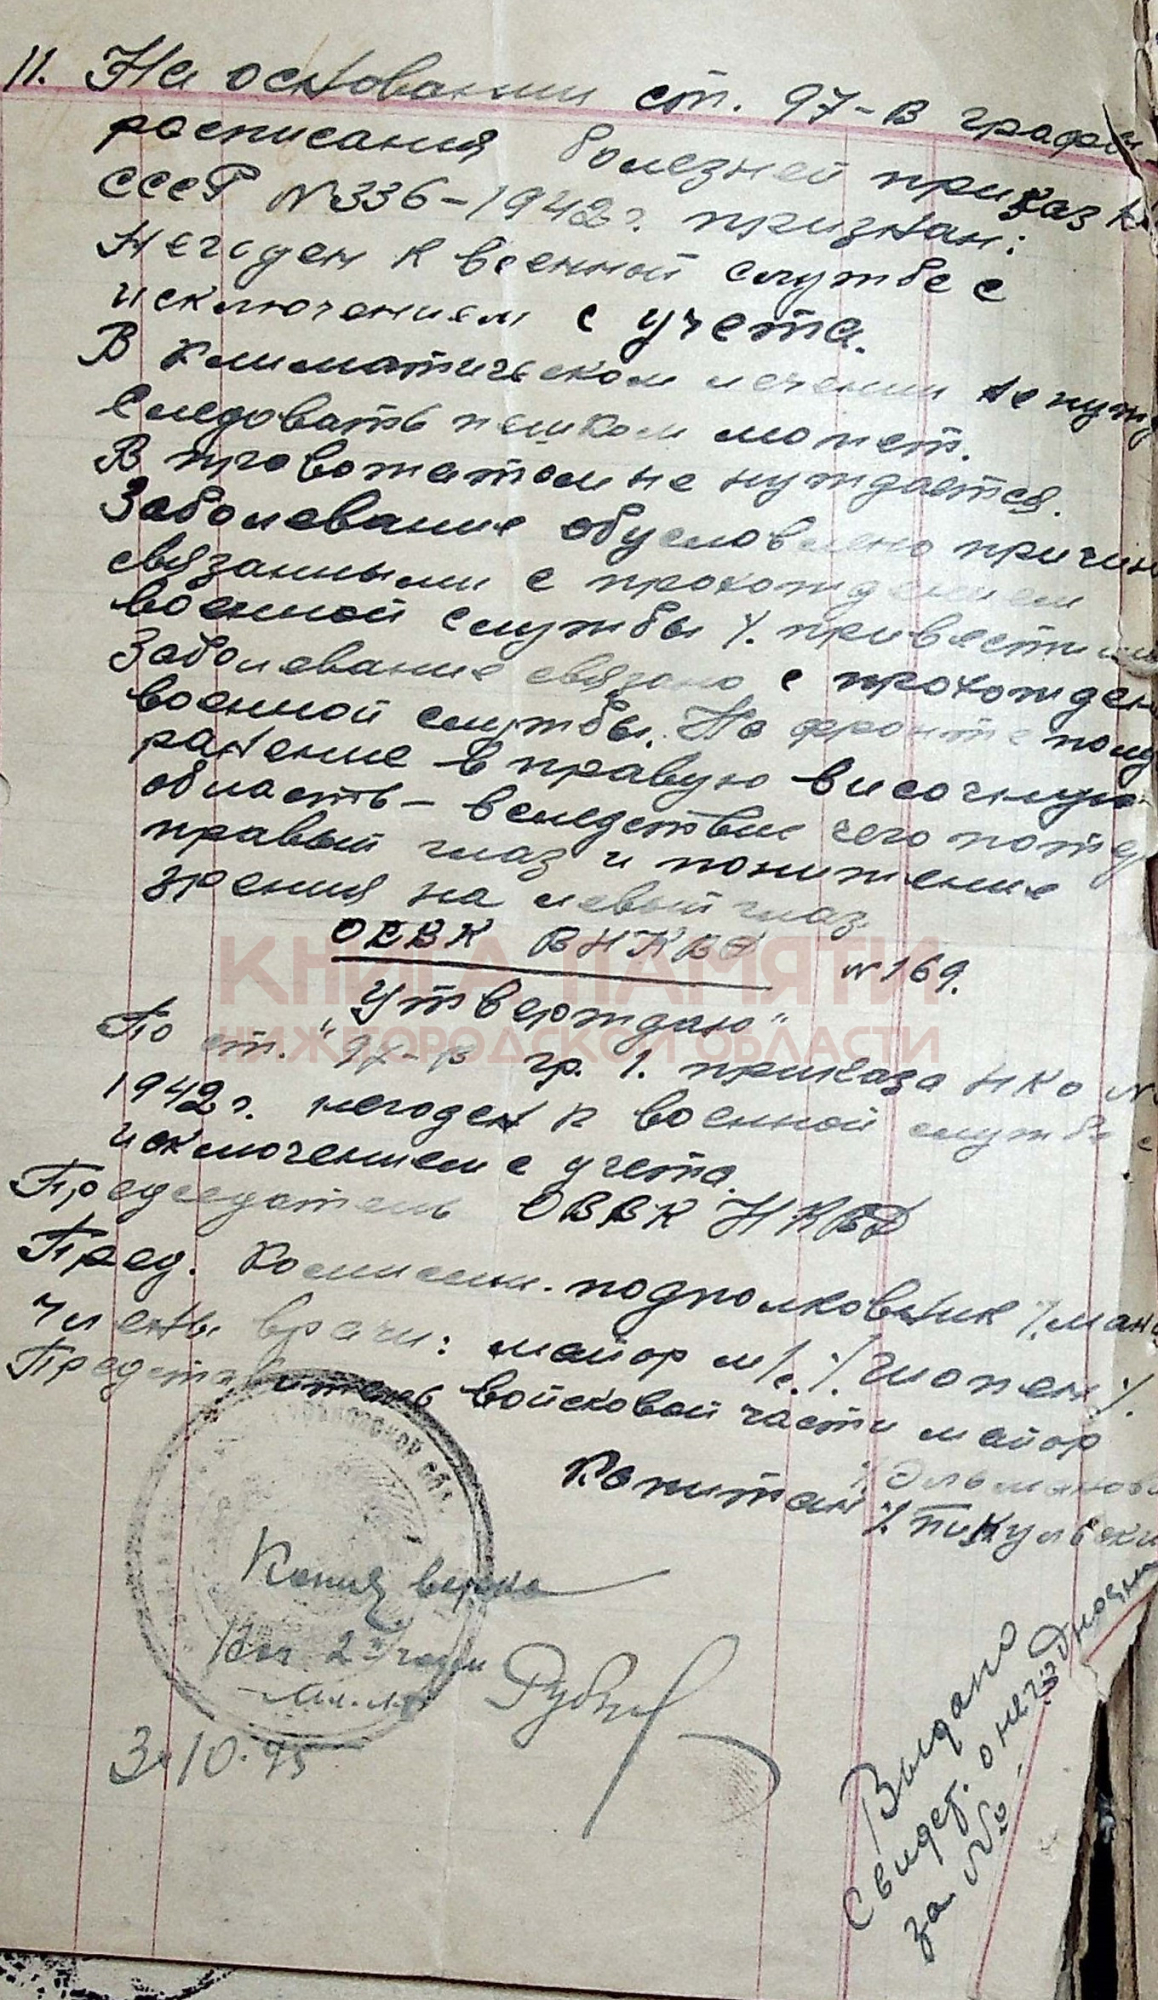 11. На основании ст. 97-в графы
расписания болезней приказ
СССР №336-1942г. признан:
Негоден к военной службе с
исключением с учета.
В климатическом лечении не нужд
Следовать пешком может.
В провожатом не нуждается.
Заболевание обусловлено причин
связанными с прохождением
военной службы /. привести
Заболевание связано с прохожден
военной службы. На фронте полу
ранение в правую височную
область - вследствие чего потер
правый глаз и понижение
зрения на левый глаз
ОВВК ВНКВД №169.
КНИГА ПАМЯТИ
НИЖГОРОДСКОЙ ОБЛАСТИ
"Утверждаю"
По ст. 97-в гр. 1. приказа НКО №
1942г. негоден к военной службе с
исключением с учета.
Председатель ОВВК НКВД
Пред. комиссии. подполковник /.ман
Члены врачи: майор м/с. /Шопен/.
Представитель войсковой части майор
Капитан /.Пикульски
Копия верна
Нач 2й части
3.10.45
Выдано
Свидет. о негодности
за №